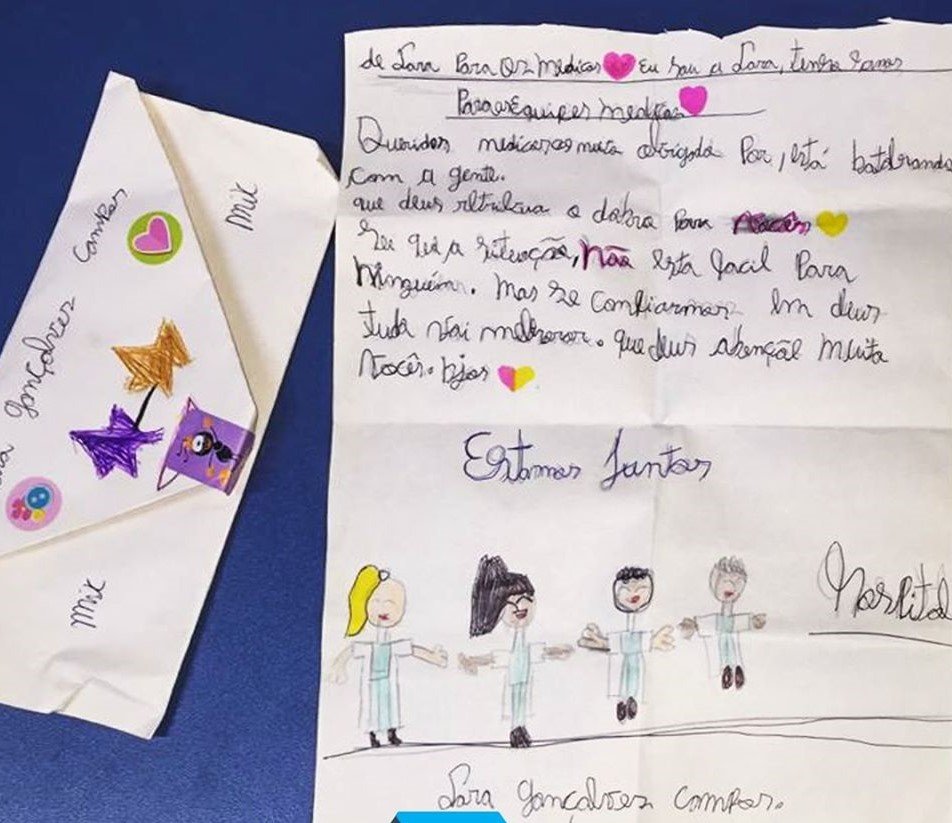 de Sara Para os medicos Eu sou a Sara, tenho 8 anos
Para as Equipes medicas
Queridos medicos muito obrigada Por, está batalhando
com a gente.
que deus retribua o dobro Para vocês
Sei qui a situação, não esta facil Para
Ninguém. mas se confiarmos em deus
tudo vai melhorar. que deus abençõe muito
vocês. bjos
Estamos Juntos
Hospital
Sara gonçalves campos.
gonçalves
campos
Mix
Mix